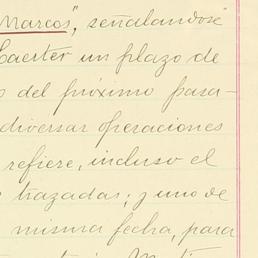 Marcos", señalandose
Caerter un plazo de
del próximo pasa-
diversar operaciones
refiere, incluso el
trazadas; y uno de
misma fecha, para